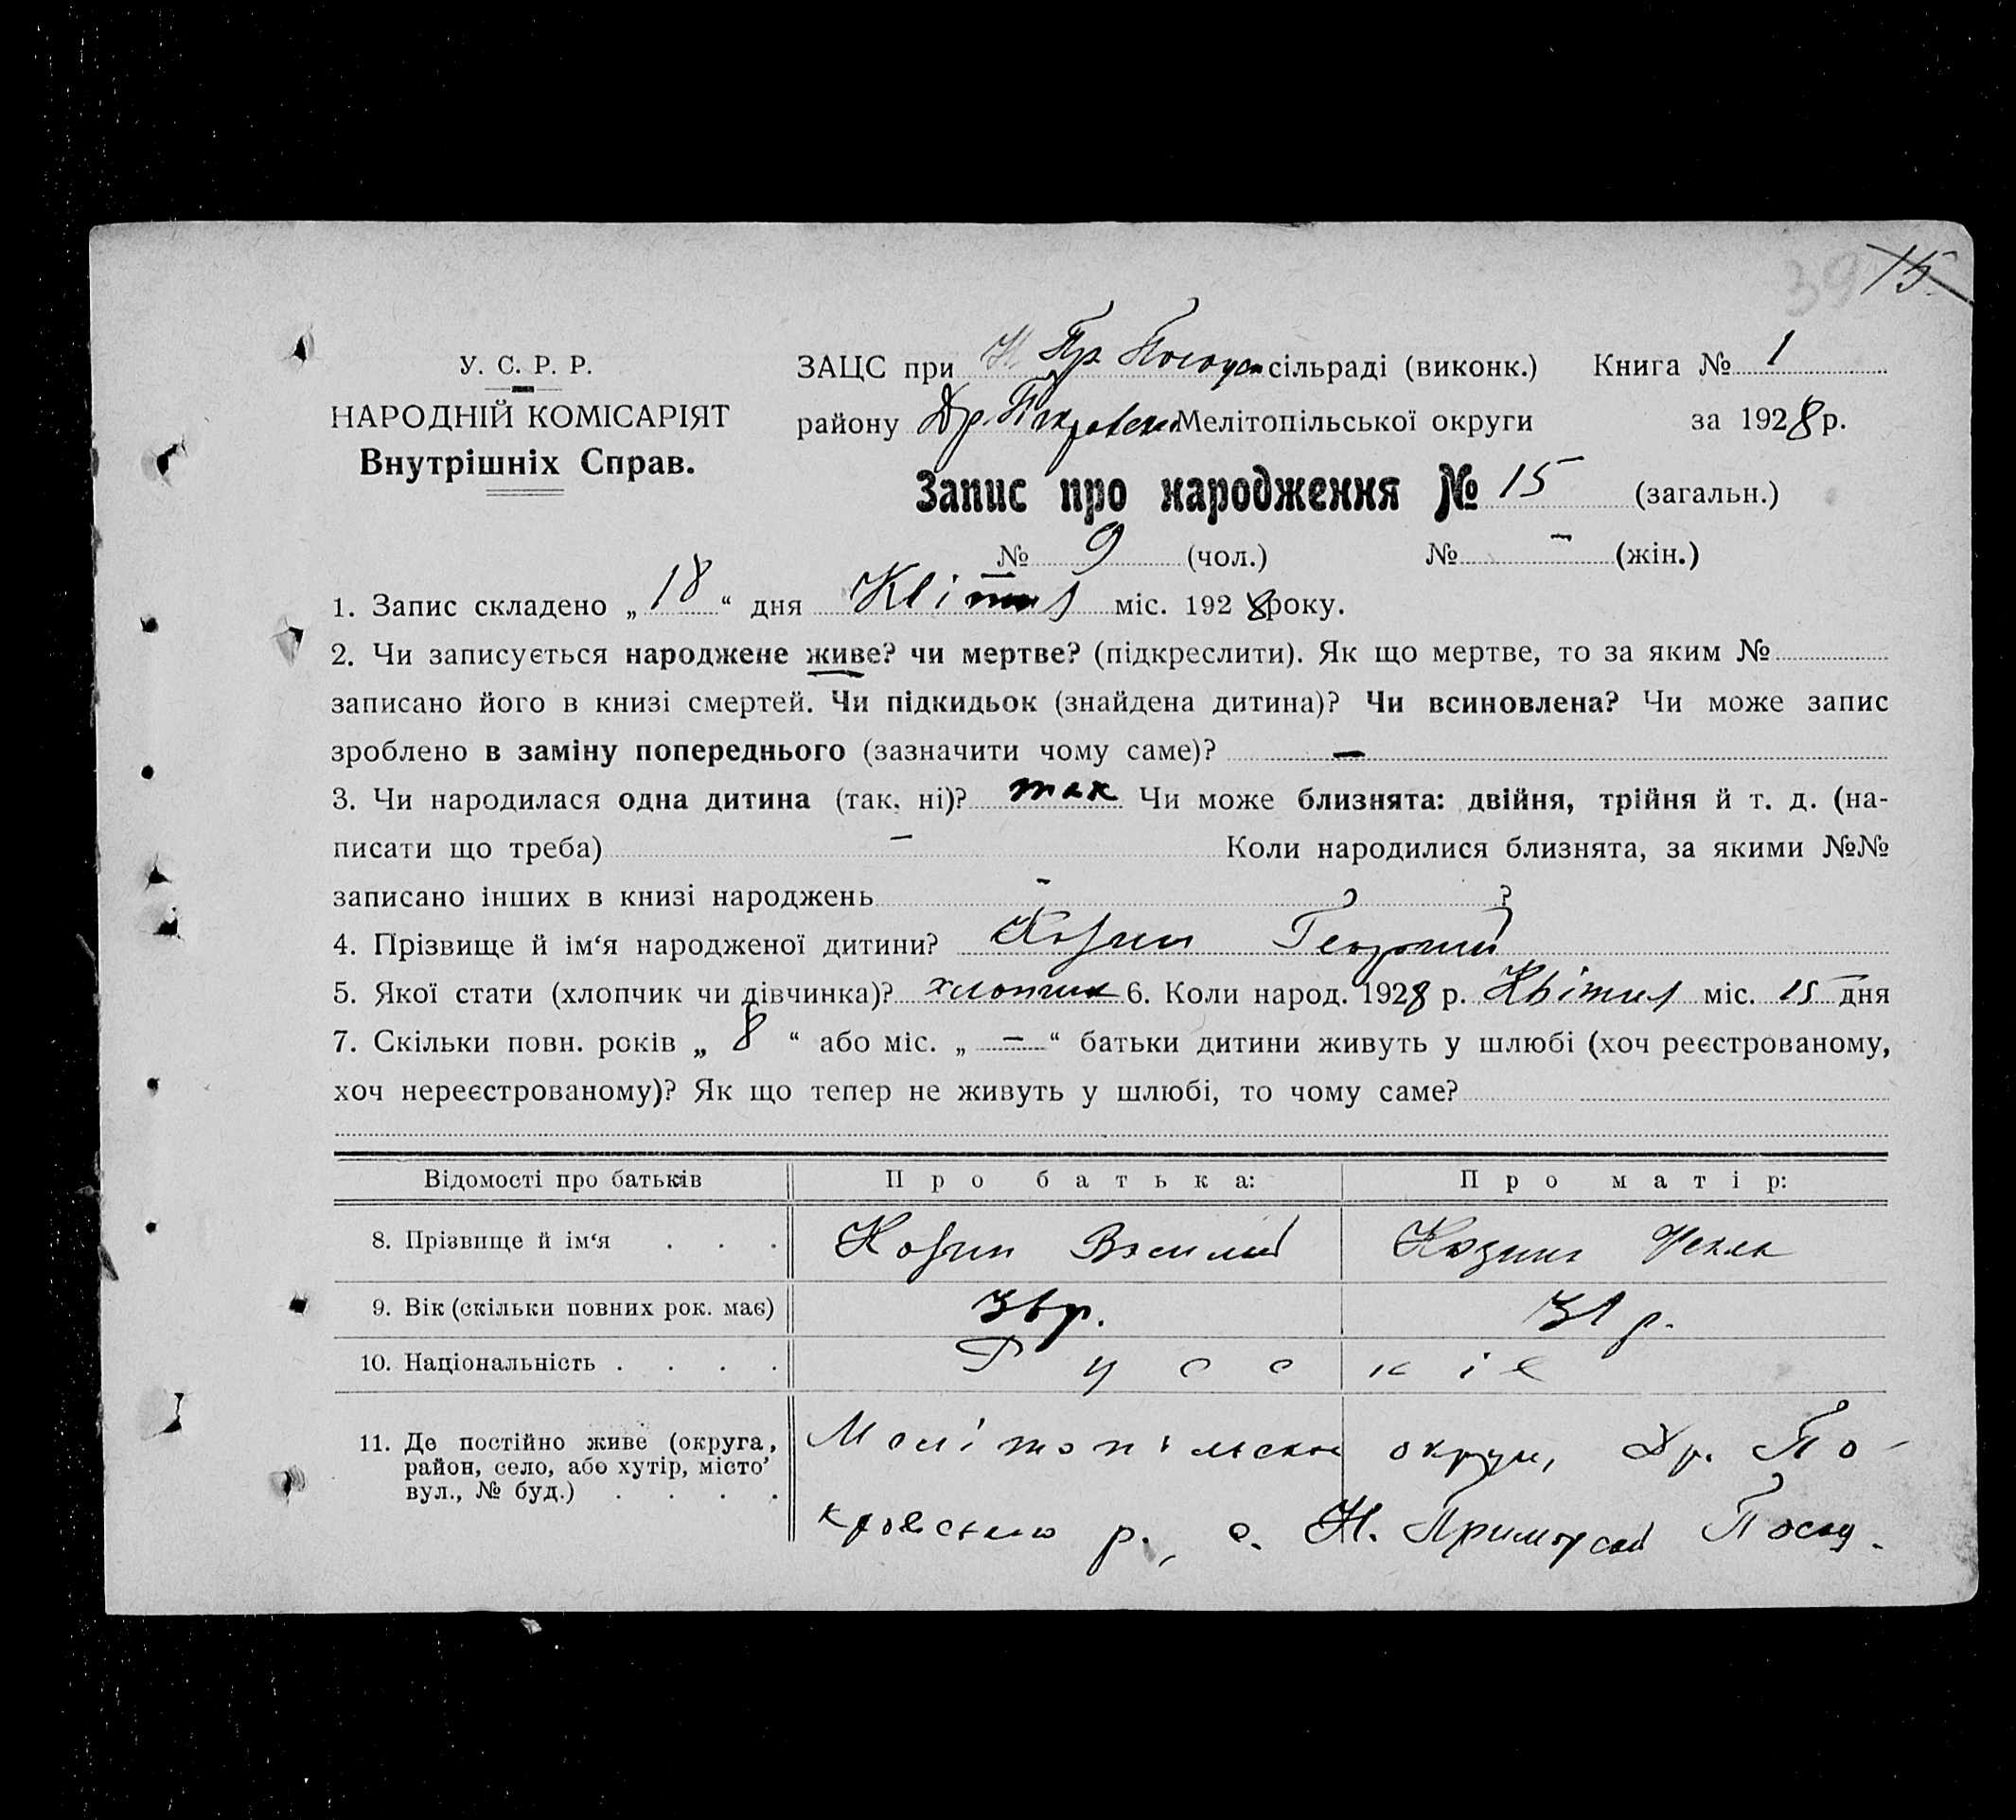 39 15
У. С. Р. Р.
НАРОДНІЙ КОМІСАРІЯТ
Внутрішніх Справ.
ЗАЦС при Н Пр Посадск сільраді (виконк.) Книга № 1
району Др. Покровськ Мелітопільської округи за 1928 р.
Запис про народження № 15 (загальн.)
№ 9 (чол.) № – (жін.)
1. Запис складено „ 18 “ дня Квітня міс. 1928 року.
2. Чи записується народжене живе? чи мертве? (підкреслити). Як що мертве, то за яким №
записано його в книзі смертей. Чи підкидьок (знайдена дитина)? Чи всиновлена? Чи може запис
зроблено в заміну попереднього (зазначити чому саме)? –
3. Чи народилася одна дитина (так, ні)? так Чи може близнята: двійня, трійня й т. д. (на-
писати що треба) – Коли народилися близнята, за якими №№
записано інших в книзі народжень – ?
4. Прізвище й ім‘я народженої дитини? Козин Георгий
5. Якої стати (хлопчик чи дівчинка)? хлопчик 6. Коли народ. 1928 р. Квітня міс. 15 дня
7. Скільки повн. років „ 8 “ або міс. „ – “ батьки дитини живуть у шлюбі (хоч реєстрованому,
хоч нереєстрованому)? Як що тепер не живуть у шлюбі, то чому саме?
Відомості про батьків Про батька: Про матір:
8. Прізвище й ім‘я . . . Козин Василий Козина Текла
9. Вік (скільки повних рок. має) 36 р. 31 р.
10. Національність . . . . Русскіе
11. Де постійно живе (округа, район, село, або хутір, місто, вул., № буд.) . . . . Мелітопільська округи, Др. По-
кровського р., с. Н. Приморский Посад.